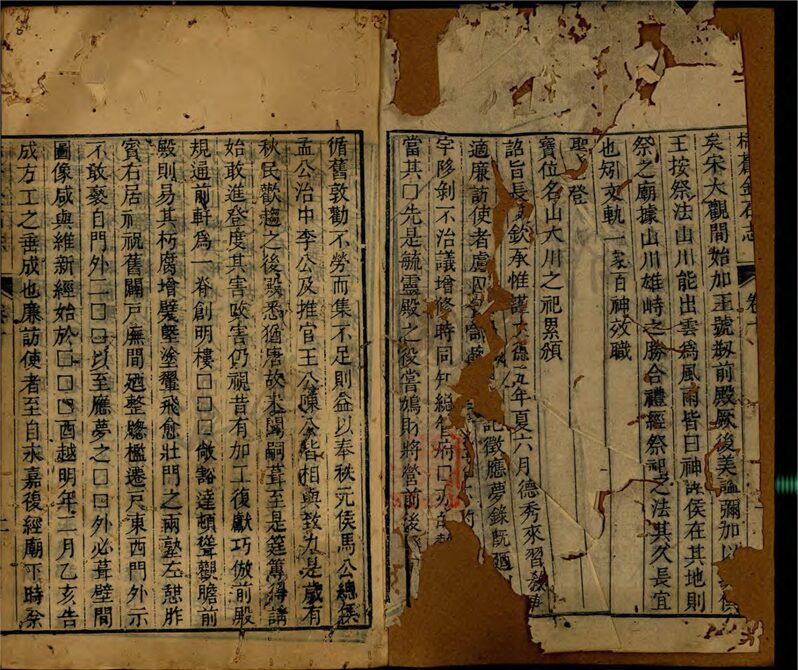 栝蒼金石志 卷十
矣宋大觀間始加王號刱前殿厥後美謚彌加以 侯
王按祭法山川能出雲爲風雨皆曰神諸侯在其地則
祭之廟據山川雄峙之勝合禮經祭祀之法其久長宜
也矧文軌一家百神效職
聖 登
寶位名山大川之祀累頒
詔旨長 欽承惟謹大德五年夏六月德秀來習敎事
適廉訪使者慮囚 記徵應夢錄旣廼
宇陊剝不治議增修時同知總管府□亦
當其□先是毓靈殿之役嘗鳩財將營前後
循舊敦勸不勞而集不足則益以奉秩元侯馬公總僕
孟公治中李公及推官王公陳公皆相與致力是歲有
秋民歡趨之後殿悉猶唐故未闢嗣葺至是筵篿得講
始敢進登度其害政害仍視昔有加工復獻巧倣前殿
規通前軒爲一脊創明樓□□□敞豁達頓聳觀瞻前
殿則易其朽腐增甓墼塗翬飛愈壯門之兩塾左憇胙
賓右居祠祝舊闢戸廡間廼整牕檻遷戸東西門外示
不敢褻自門外二□□以至應夢之□□外必葺壁間
圖像咸與維新經始於□□□酉越明年二月乙亥告
成方工之垂成也廉訪使者至自永嘉復經廟下時余